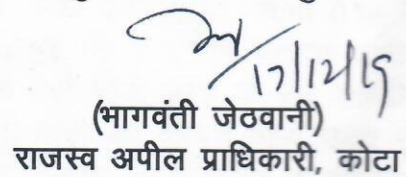 17/12/19
(भागवंती जेठवानी)
राजस्व अपील प्राधिकारी, कोटा